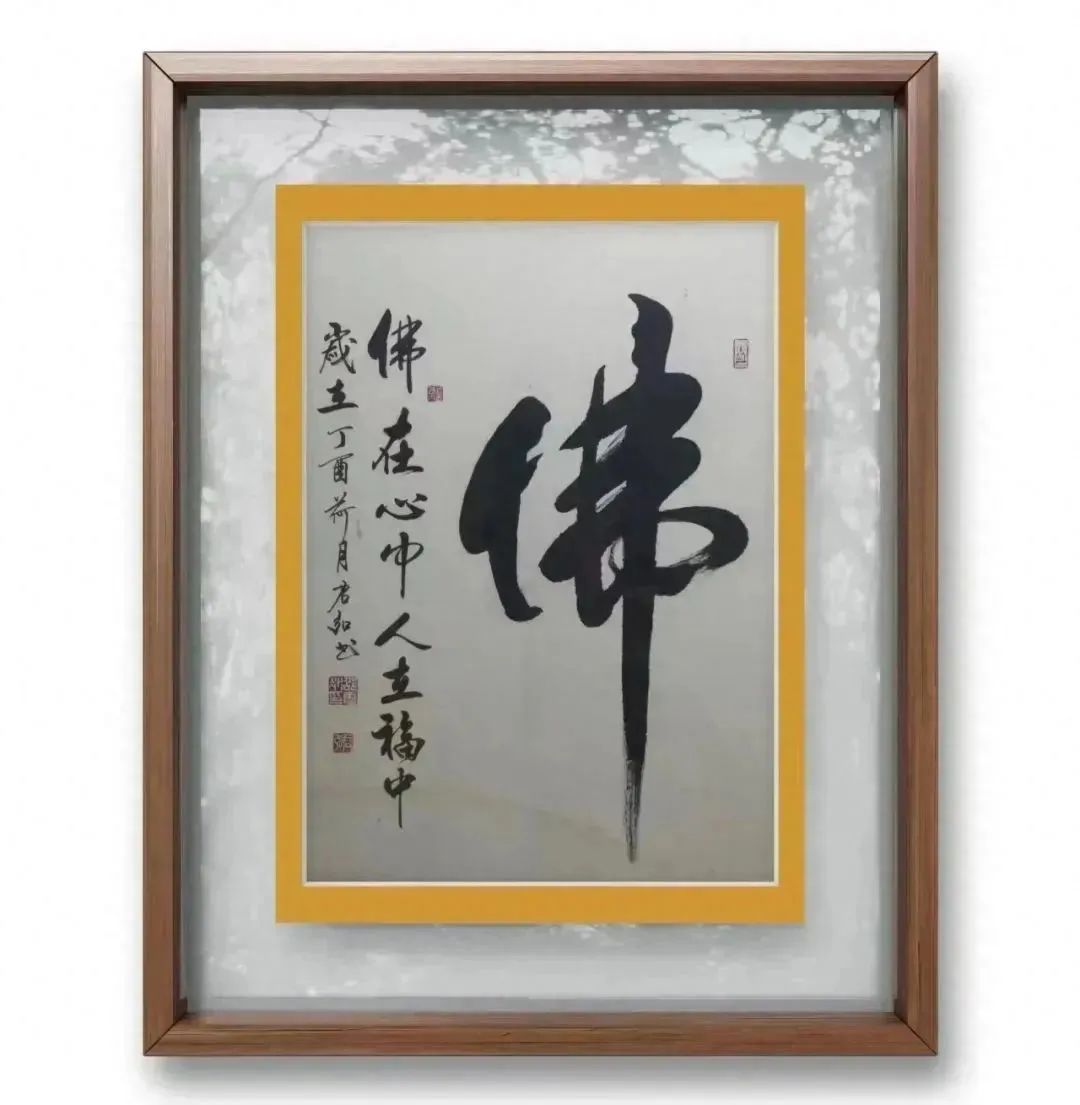 佛
佛在心中人立福中
歲立丁酉荷月君弘书